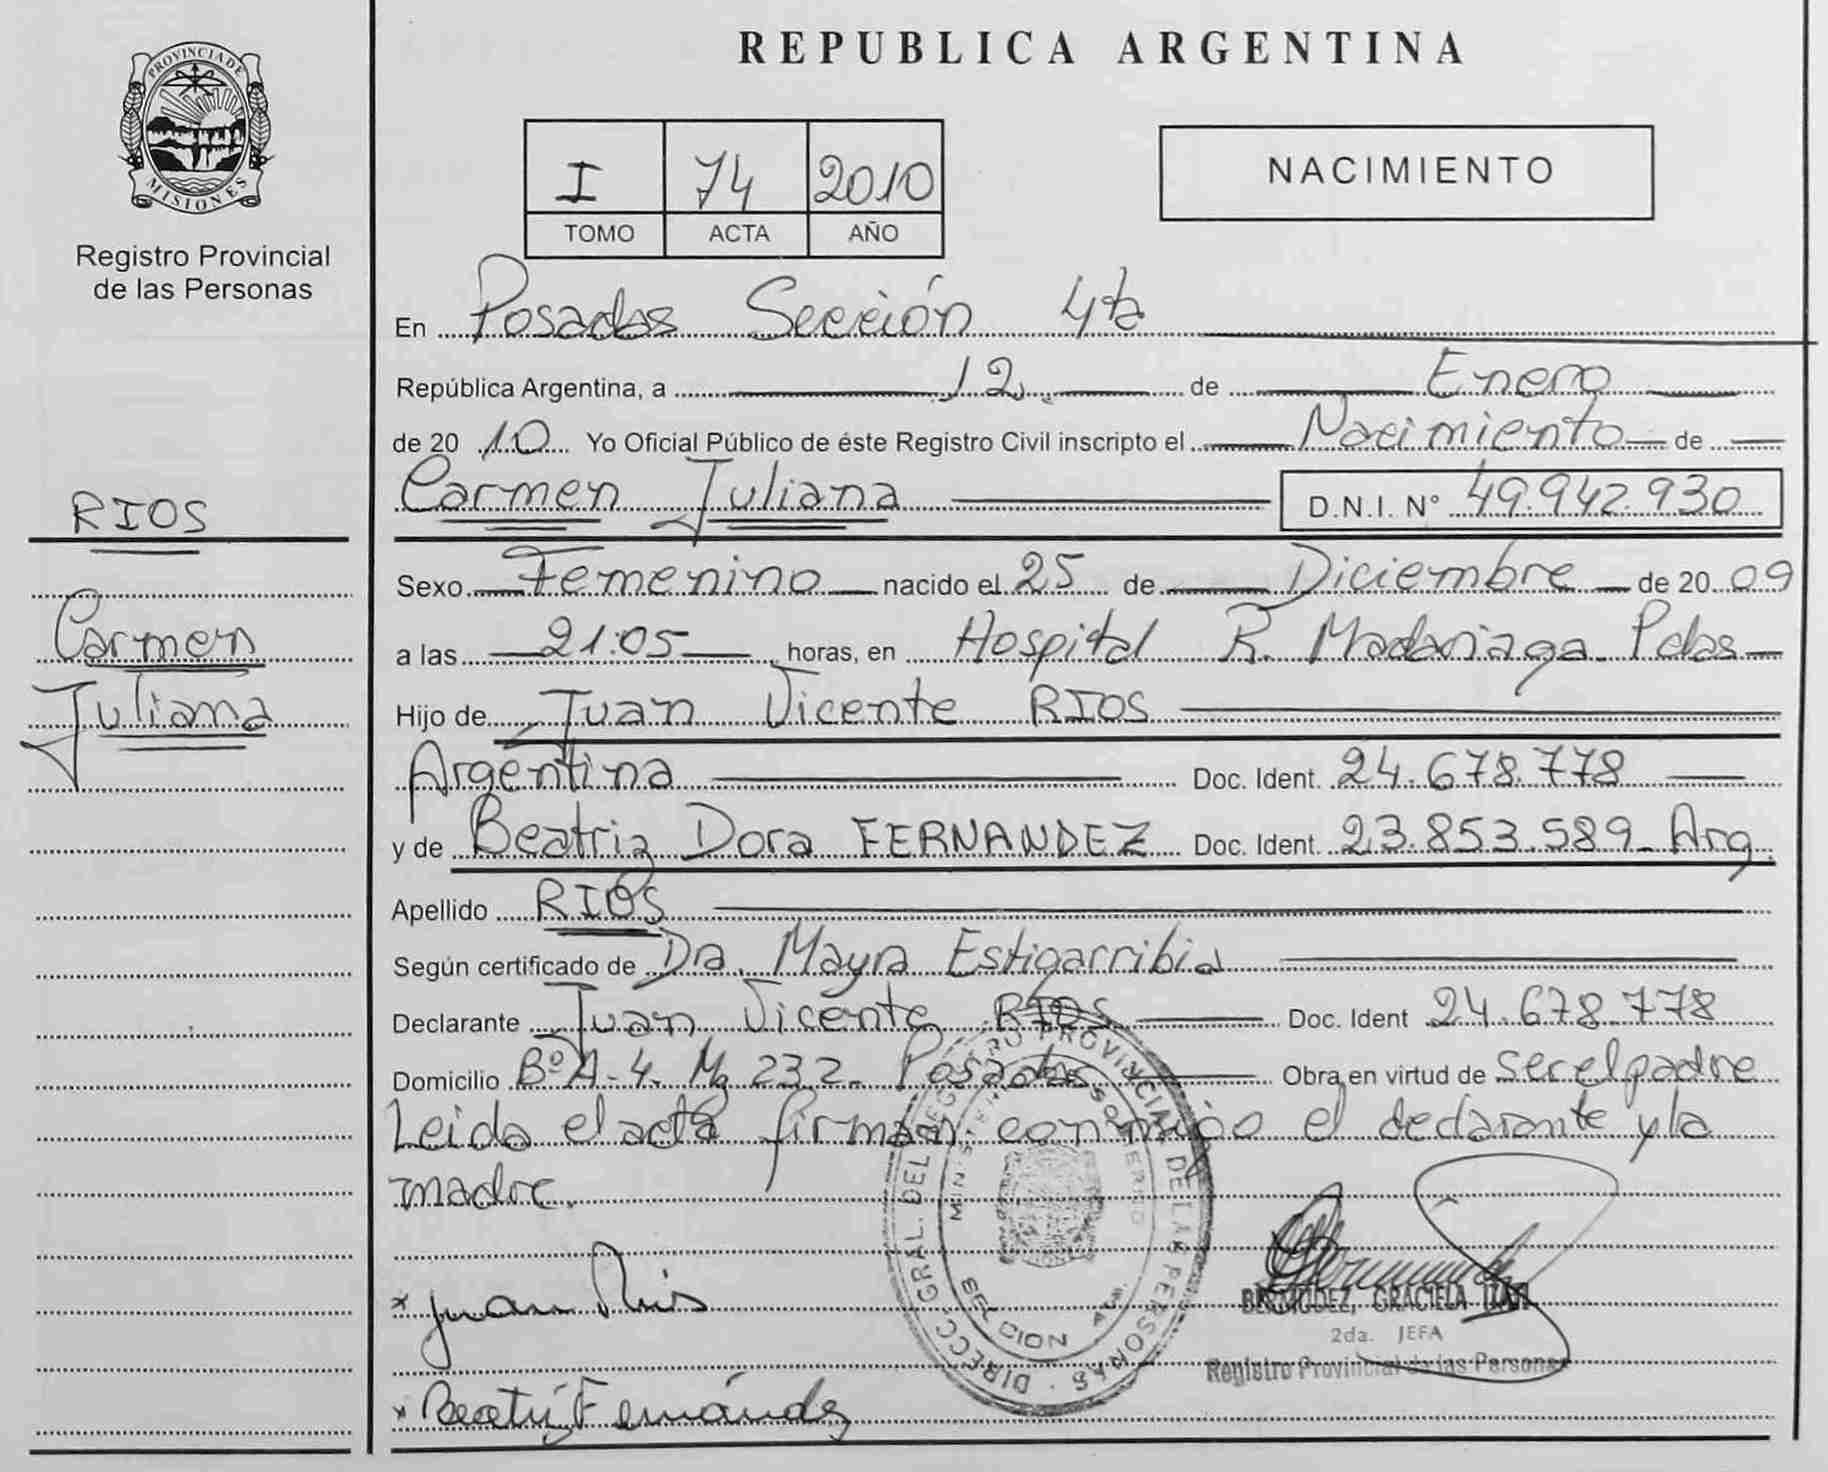 PROVINCIA DE
MISIONES
Registro Provincial
de las Personas
RIOS
Carmen
Juliana
REPUBLICA ARGENTINA
I 74 2010
TOMO ACTA AÑO
NACIMIENTO
En Posadas Sección 4ta
República Argentina, a 12 de Enero
de 20 10 Yo Oficial Público de éste Registro Civil inscripto el Nacimiento de
Carmen Juliana D.N.I. N° 49.942.930
Sexo Femenino nacido el 25 de Diciembre de 20 09
a las 21:05 horas, en Hospital R. Madariaga Pdas
Hijo de Juan Vicente RIOS
Argentina Doc. Ident. 24.678.778
y de Beatriz Dora FERNANDEZ Doc. Ident. 23.853.589_ Arg.
Apellido RIOS
Según certificado de Dra. Mayra Estigarribia
Declarante Juan Vicente RIOS Doc. Ident 24.678.778
Domicilio Bº A-4. Mz 232_ Posadas Obra en virtud de ser el padre
Leida el acta firman conmigo el declarante y la
madre.
DIRECC. GRAL. DEL REGISTRO PROVINCIAL DE LAS PERSONAS
x Juan Rios
BERMUDEZ, GRACIELA
2da. JEFA
Registro Provincial de las Personas
x Beatriz Fernández